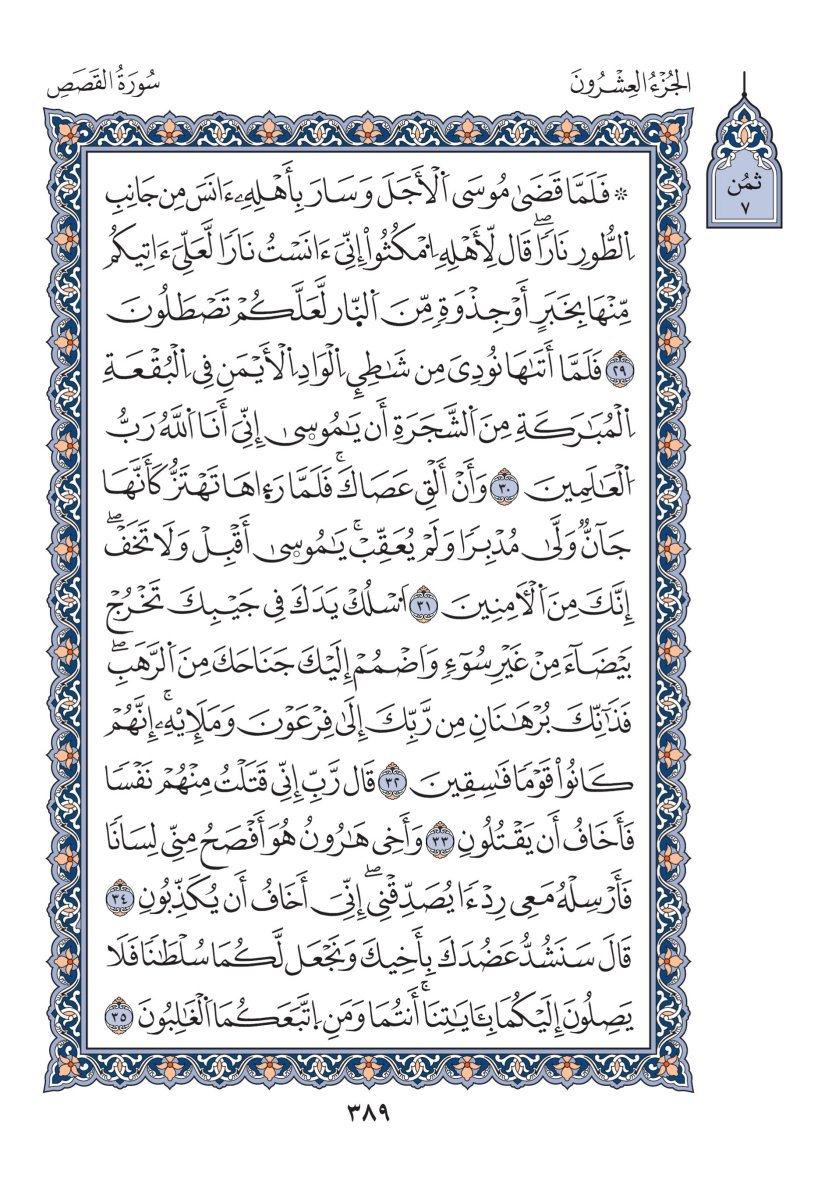 الجُزْءُ العِشْرُونَ
سُورَةُ القَصَصِ
ثُمُن
٧
۞ فَلَمَّا قَضَىٰ مُوسَى اَ۬لْأَجَلَ وَسَارَ بِأَهْلِهِۦ ءَانَسَ مِن جَانِبِ
اِ۬لطُّورِ نَارٗاۖ قَال لِّأَهْلِهِ اِ۟مْكُثُوٓاْ إِنِّيَ ءَانَسْتُ نَارٗا لَّعَلِّيَ ءَاتِيكُم
مِّنْهَا بِخَبَرٍ أَوْ جِذْوَةٖ مِّنَ اَ۬لنّ۪ار لَّعَلَّكُمْ تَصْطَلُونَ
٢٩ فَلَمَّا أَتَىٰهَا نُودِيَ مِن شَٰطِيِٕ اِ۬لْوَادِ اِ۬لْأَيْمَنِ فِي اِ۬لْبُقْعَةِ
اِ۬لْمُبَٰرَكَةِ مِنَ اَ۬لشَّجَرَةِ أَن يَٰمُوس۪ىٰ إِنِّيَ أَنَا اَ۬للَّهُ رَبُّ
اُ۬لْعَٰلَمِينَ ٣٠ وَأَنْ أَلْقِ عَصَاكَۚ فَلَمَّا رَء۪اهَا تَهْتَزُّ كَأَنَّهَا
جَآنّٞ وَلَّىٰ مُدْبِرٗا وَلَمْ يُعَقِّبْۚ يَٰمُوس۪ىٰ أَقْبِلْ وَلَا تَخَفْۖ
إِنَّكَ مِنَ اَ۬لْأٓمِنِينَ ٣١ اَ۟سْلُكْ يَدَكَ فِي جَيْبِكَ تَخْرُجْ
بَيْضَآءَ مِنْ غَيْرِ سُوٓءٖ وَاَضْمُمْ إِلَيْكَ جَنَاحَكَ مِنَ اَ۬لرَّهَبِۖ
فَذَٰٓنِّكَ بُرْهَٰنَانِ مِن رَّبِّكَ إِلَىٰ فِرْعَوْنَ وَمَلَإِيْهِۦۚ إِنَّهُمْ
كَانُواْ قَوْمٗا فَٰسِقِينَ ٣٢ قَال رَّبِّ إِنِّي قَتَلْتُ مِنْهُمْ نَفْسٗا
فَأَخَافُ أَن يَقْتُلُونِ ٣٣ وَأَخِي هَٰرُونُ هُوَ أَفْصَحُ مِنِّي لِسَانٗا
فَأَرْسِلْهُ مَعِي رِدْءٗا يُصَدِّقْنِيۖ إِنِّيَ أَخَافُ أَن يُكَذِّبُونِ ٣٤
قَالَ سَنَشُدُّ عَضُدَكَ بِأَخِيكَ وَنَجْعَل لَّكُمَا سُلْطَٰنٗا فَلَا
يَصِلُونَ إِلَيْكُمَا بِـَٔايَٰتِنَاۚ أَنتُمَا وَمَنِ اِ۪تَّبَعَكُمَا اَ۬لْغَٰلِبُونَ ٣٥
٣٨٩